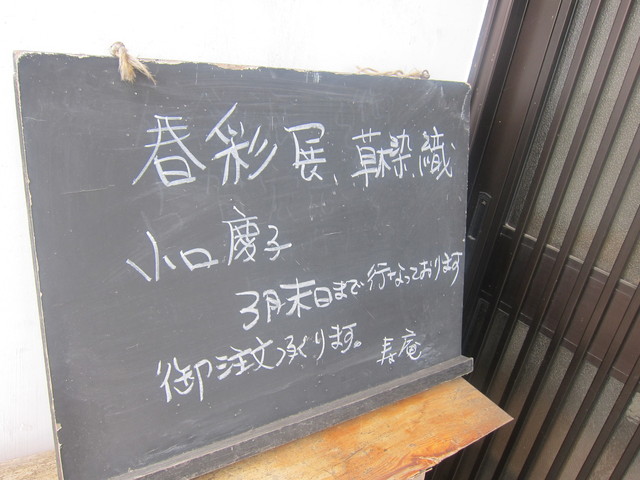 春彩展、草木染、織
小口慶子
3月末日まで行なっております
御注文承ります。 寿庵